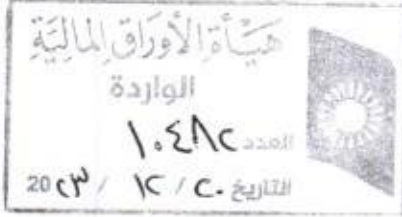 هَيْأَةُ الأَوْرَاقِ المَالِيَّةِ
الواردة
العدد ١٠٤٨٢
التاريخ ٢٠ / ١٢ / 20٢٣